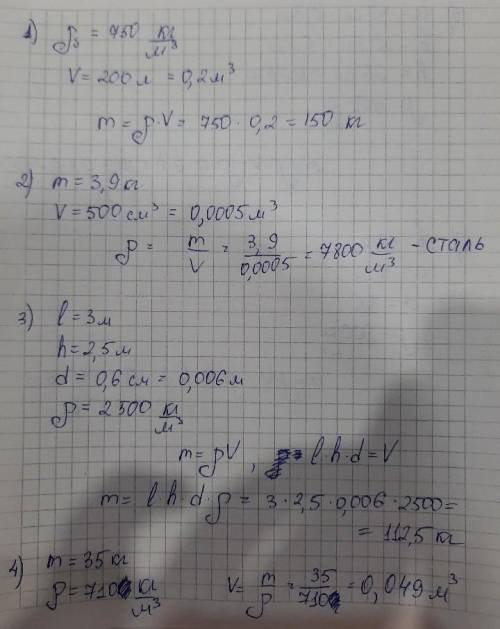 1) ρб = 750 кг/м³
V = 200 л = 0,2 м³
m = ρ·V = 750 · 0,2 = 150 кг
2) m = 3,9 кг
V = 500 см³ = 0,0005 м³
ρ = m/V = 3,9/0,0005 = 7800 кг/м³ - сталь
3) l = 3 м
h = 2,5 м
d = 0,6 см = 0,006 м
ρ = 2500 кг/м³
m = ρV , l·h·d = V
m = l·h·d·ρ = 3 · 2,5 · 0,006 · 2500 =
= 112,5 кг
4) m = 35 кг
ρ = 710 кг/м³ V = m/ρ = 35/710 = 0,049 м³